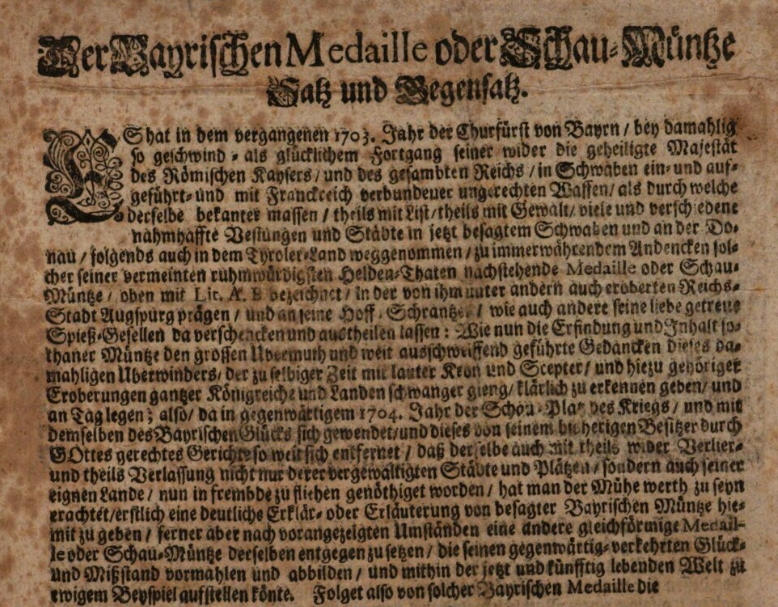 Der Bayrischen Medaille oder Schau-Müntze
Satz und Gegensatz.
ES hat in dem vergangenen 1703. Jahr der Churfürst von Bayrn / bey damahlig
so geschwind - als glücklichem Fortgang seiner wider die geheiligte Majestät
des Römischen Kaysers / und des gesambten Reichs / in Schwaben ein- und auf-
geführt- und mit Franckreich verbundeuer ungerechten Waffen / als durch welche
derselbe bekanter massen / theils mit List / theils mit Gewalt / viele und verschiedene
nahmhaffte Vestungen und Städte in jetzt besagtem Schwaben und an der Do-
nau / folgends auch in dem Tyroler-Land weggenommen / zu immerwährendem Andencken sol-
cher seiner vermeinten ruhmwürdigsten Helden-Thaten nachstehende Medaille oder Schau-
Müntze / oben mit Lit. A. B bezeichnet / in der von ihm unter andern auch eroberten Reichs-
Stadt Augspurg prägen / und an seine Hoff-Schrantzen / wie auch andere seine liebe getreue
Spieß-Gesellen da verschencken und austheilen lassen: Wie nun die Erfindung und Inhalt so-
thaner Müntze den grossen Ubermuth und weit ausschweiffend geführte Gedancken dieses da-
mahligen Uberwinders / der zu selbiger Zeit mit lauter Kron und Scepter / und hiezu gehöriger
Eroberungen gantzer Königreiche und Landen schwanger gieng / klärlich zu erkennen geben / und
an Tag legen; also / da in gegenwärtigem 1704. Jahr der Schau-Platz des Kriegs / und mit
demselben des Bayrischen Glücks sich gewendet / und dieses von seinem bisherigen Besitzer durch
GOttes gerechtes Gerichte so weit sich entfernet / daß derselbe auch mit theils wider Verlier-
und theils Verlassung nicht nur derer vergewaltigten Städte und Plätzen / sondern auch seiner
eignen Lande / nun in frembde zu fliehen genöthiget worden / hat man der Mühe werth zu seyn
erachtet / erstlich eine deutliche Erklär- oder Erläuterung von besagter Bayrischen Müntze hie-
mit zu geben / ferner aber nach vorangezeigten Umständen eine andere gleichförmige Medail-
le oder Schau-Müntze derselben entgegen zu setzen / die seinen gegenwärtig-verkehrten Glück-
und Mißstand vormahlen und abbilden / und mithin der jetzt und künfftig lebenden Welt zu
ewigem Beyspiel aufstellen könte. Folget also von solcher Bayrischen Medaille die